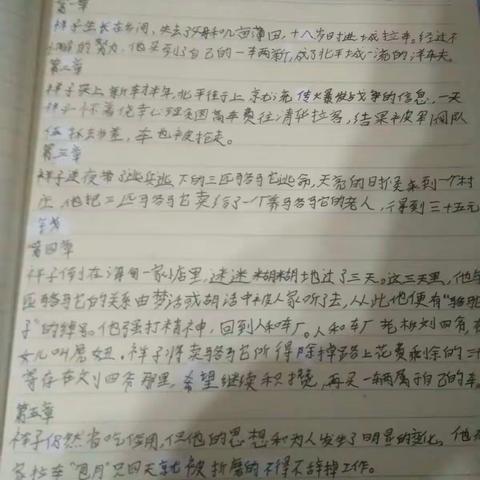 第一章
祥子生长在乡间,失去了父母和几亩薄田,十八岁时进城拉车。经过不
的努力,他买到了自己的一车两新,成了北平城一流的洋车夫。
第二章
祥子买上新车半年,北平往上 谣传火暴发战争的信息,一天
祥子怀着侥幸心理又因高车费往清华拉客,结果被军阀队
伍抓去当差,车也被抢走。
第三章
祥子连夜带了逃兵逃下的三匹骆驼逃命,天亮的时候来到一个村
庄他把三匹骆驼卖给了一个养骆驼的老人,得到三十五元
第四章
祥子倒在海甸一家小店里,迷迷糊糊地过了三天。这三天里,他与
匹骆驼的关系由梦话或胡话中被人家听了去,从此他便有"骆驼
子"的绰号。他强打精神,回到人和车厂。人和车厂老板刘四爷,有
女儿叫虎妞。祥子将卖骆驼所得除掉路上花费剩余的三十
寄存在刘四爷那里,希望继续积攒,再买一辆属于自己的车。
第五章
祥子仍然省吃俭用,但他的思想和为人发生了明显的变化。他
家拉车"包月"只四天就被折磨的不得不辞掉工作。